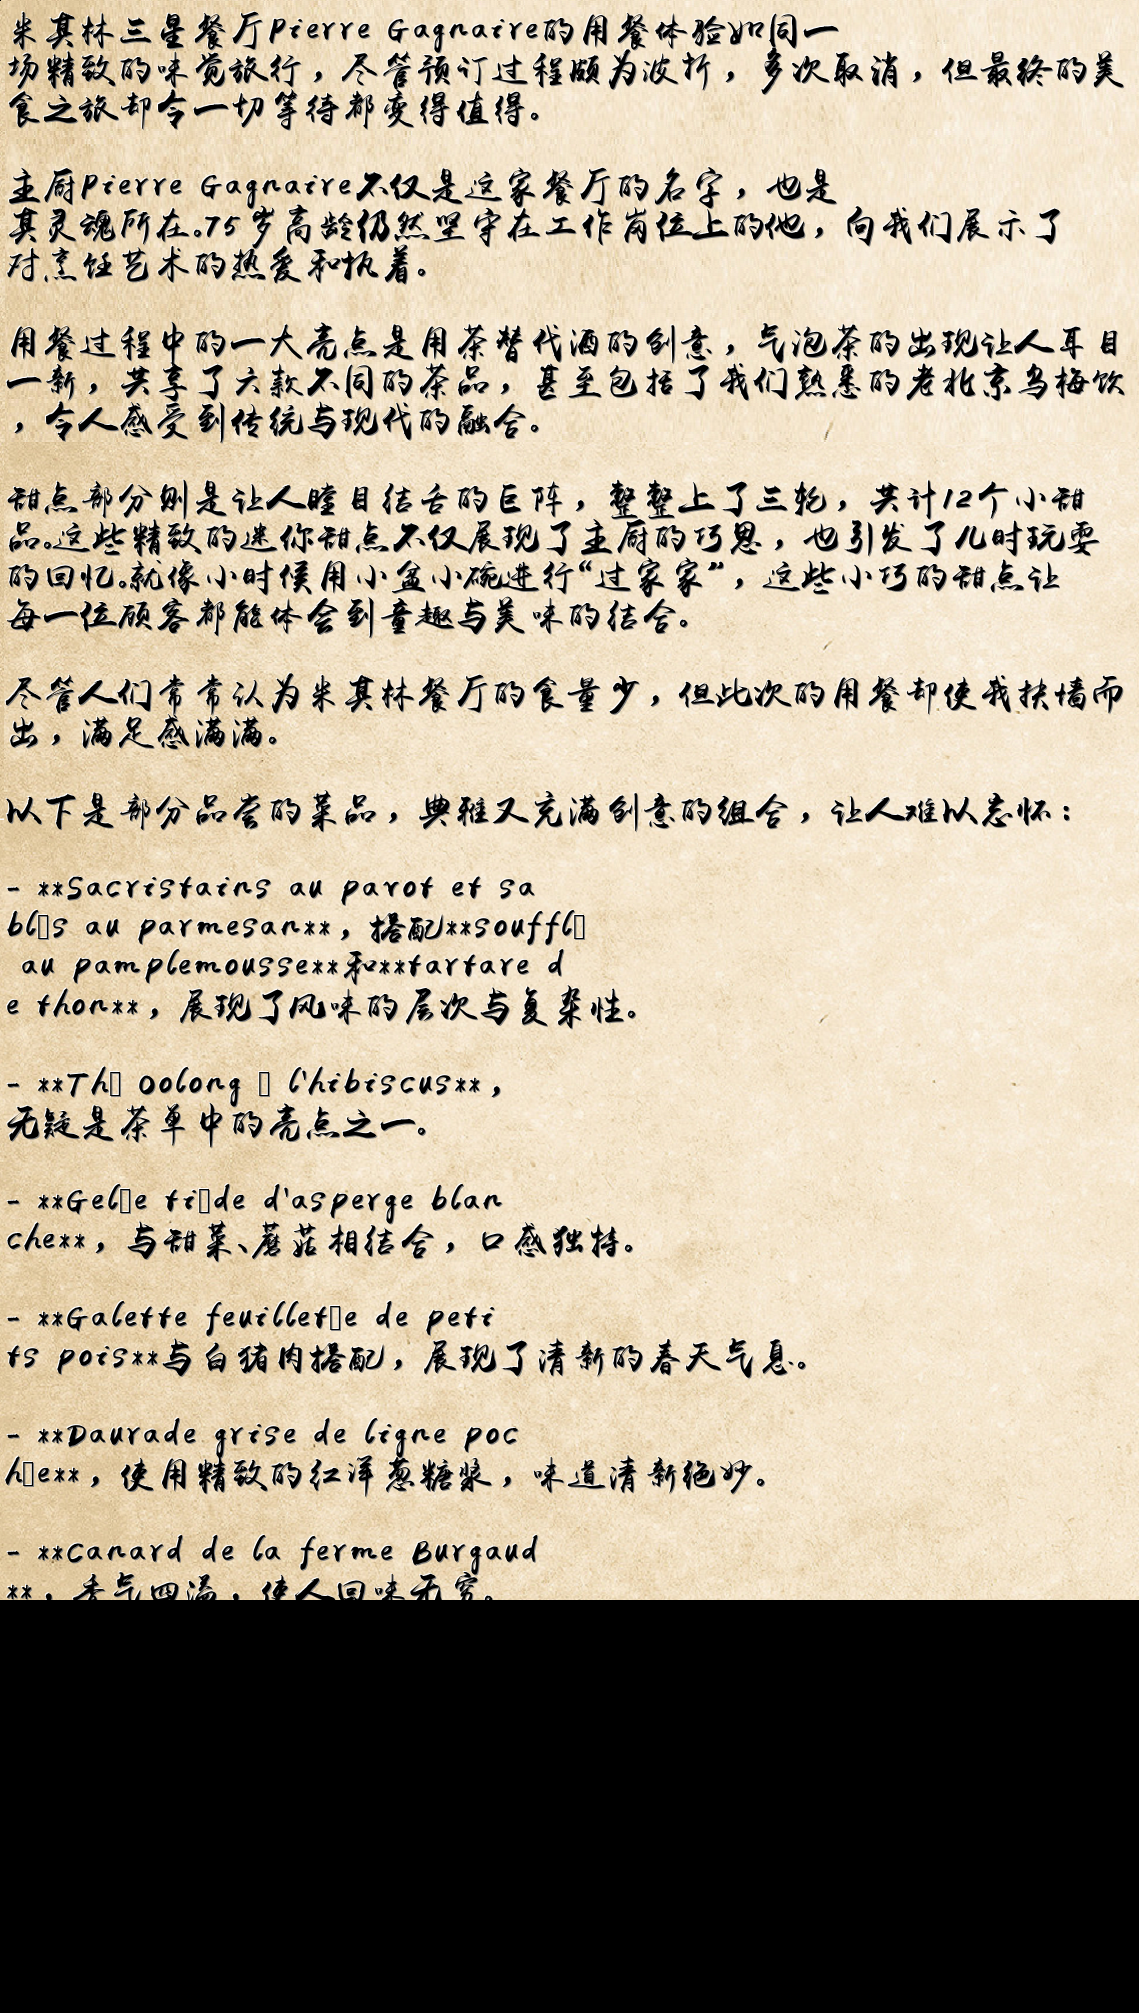 米其林三星餐厅Pierre Gagnaire的用餐体验如同一
场精致的味觉旅行，尽管预订过程颇为波折，多次取消，但最终的美
食之旅却令一切等待都变得值得。
主厨Pierre Gagnaire不仅是这家餐厅的名字，也是
其灵魂所在。75岁高龄仍然坚守在工作岗位上的他，向我们展示了
对烹饪艺术的热爱和执着。
用餐过程中的一大亮点是用茶替代酒的创意，气泡茶的出现让人耳目
一新，共享了六款不同的茶品，甚至包括了我们熟悉的老北京乌梅饮
，令人感受到传统与现代的融合。
甜点部分则是让人瞠目结舌的巨阵，整整上了三轮，共计12个小甜
品。这些精致的迷你甜点不仅展现了主厨的巧思，也引发了儿时玩耍
的回忆。就像小时候用小盆小碗进行“过家家”，这些小巧的甜点让
每一位顾客都能体会到童趣与美味的结合。
尽管人们常常认为米其林餐厅的食量少，但此次的用餐却使我扶墙而
出，满足感满满。
以下是部分品尝的菜品，典雅又充满创意的组合，让人难以忘怀：
- **Sacristains au pavot et sa
bl▯s au parmesan**，搭配**souffl▯
au pamplemousse**和**tartare d
e thon**，展现了风味的层次与复杂性。
- **Th▯ Oolong ▯ l'hibiscus**，
无疑是茶单中的亮点之一。
- **Gel▯e ti▯de d'asperge blan
che**，与甜菜、蘑菇相结合，口感独特。
- **Galette feuillet▯e de peti
ts pois**与白猪肉搭配，展现了清新的春天气息。
- **Daurade grise de ligne poc
h▯e**，使用精致的红洋葱糖浆，味道清新绝妙。
- **Canard de la ferme Burgaud
**，香气四溢，使人回味无穷。